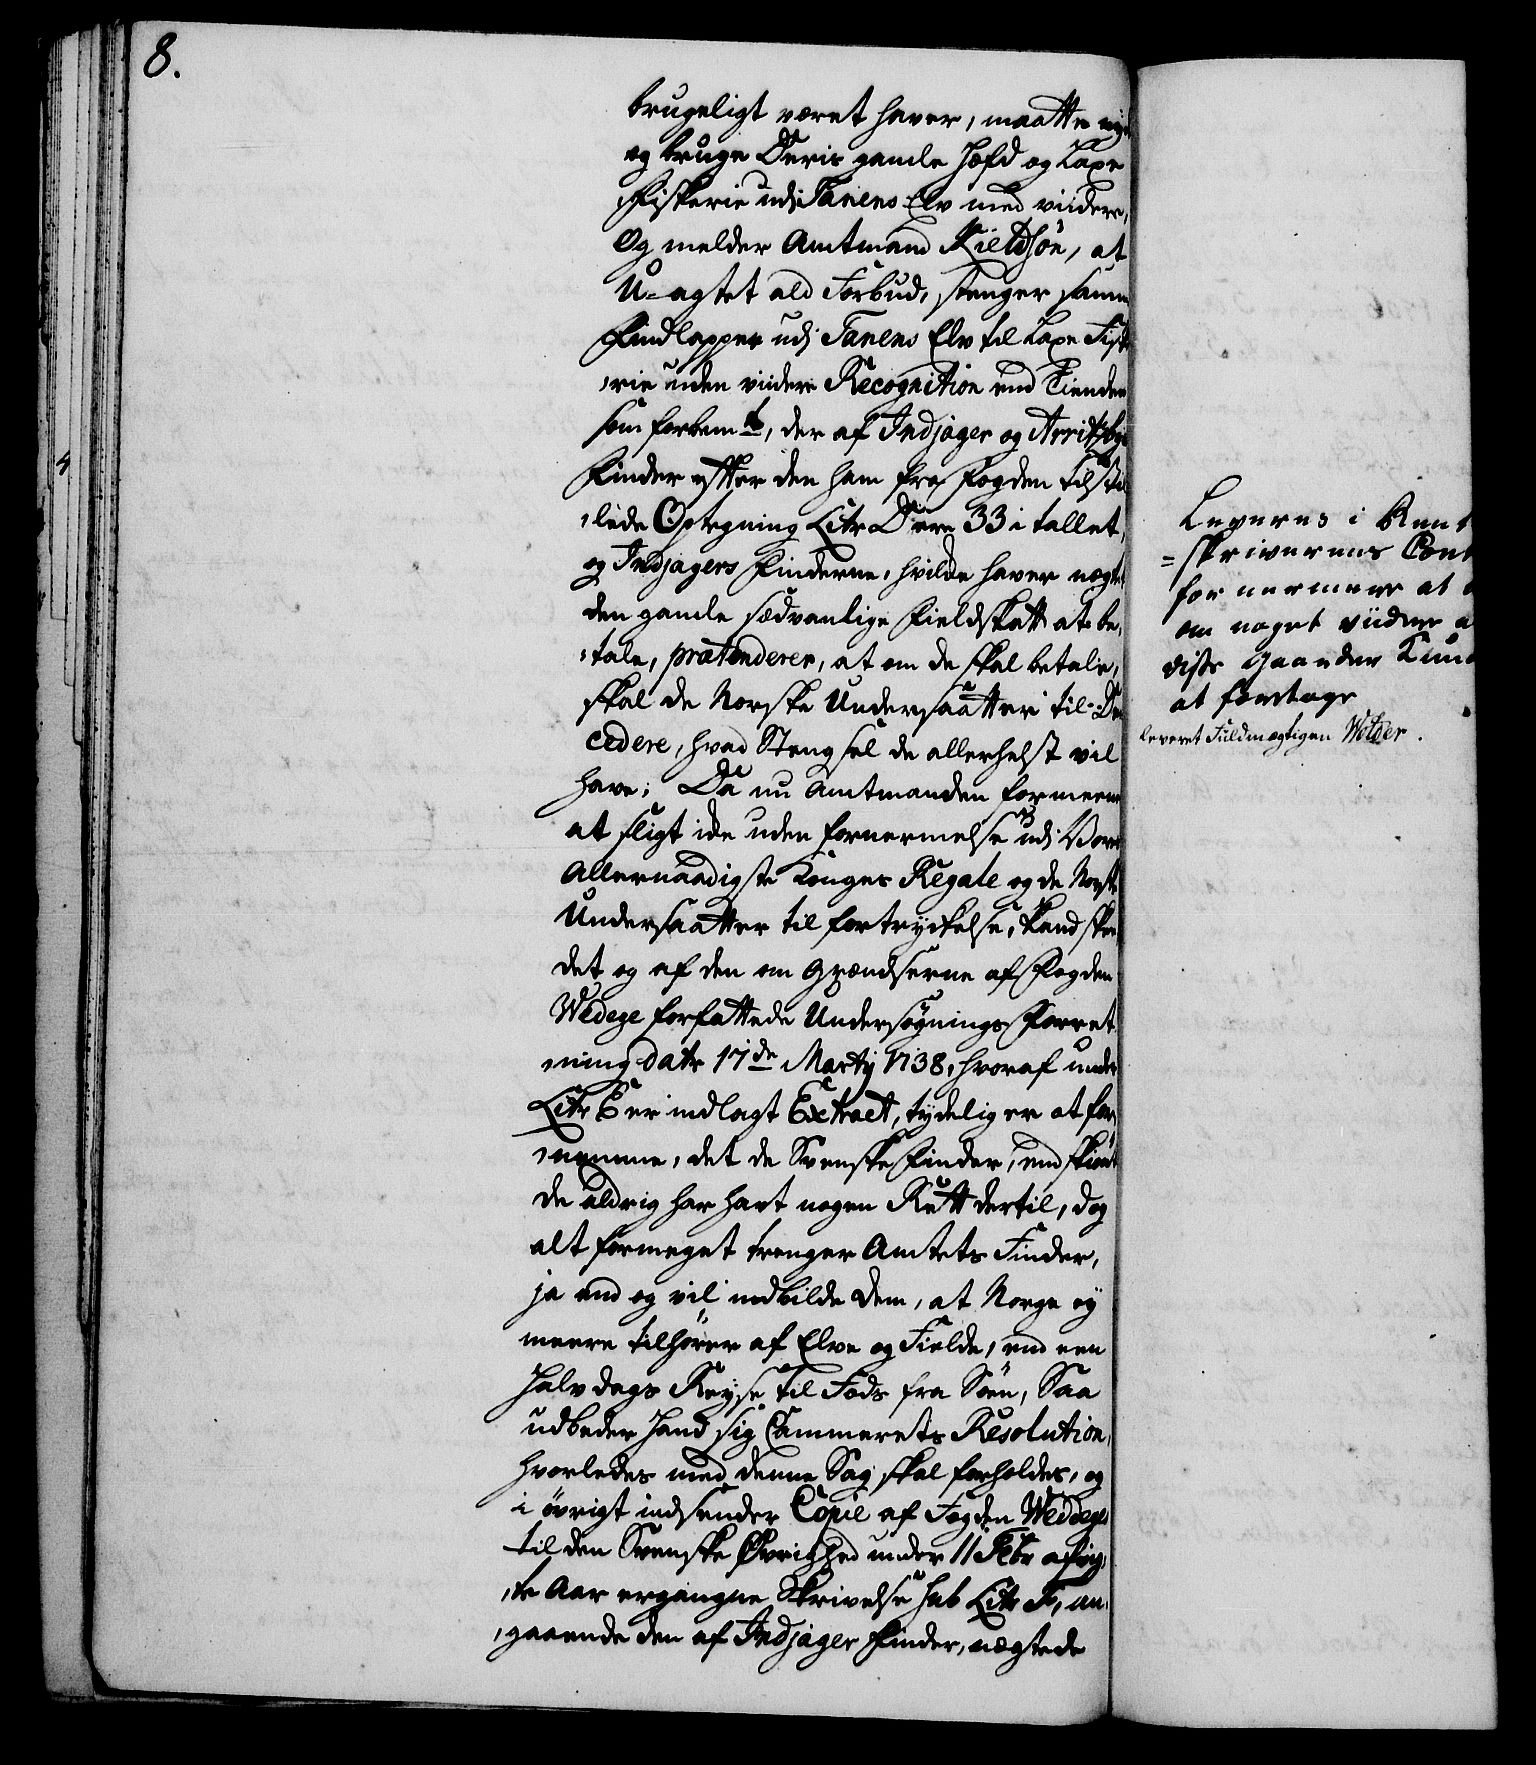 8.
brugeligt været haver, maatte nyde
og bruge Deris gamle Hæfd og Laxe
Fiskerie udj Tanens Elv med viidere,
Og melder Amtmand Kieldsøn, at
U-agtet ald Forbud, stenger samme
Findlapper udj Tanens Elv til Laxe Fiske
,rie uden viidere Recognition end Tienden
som forbemt, der af Indjager og Arritzbye
Finder efter den ham fra Fogden tilstil
,lede Optegning Litr D ere 33 i tallet,
og Indjagers Finderne, hvilke haver nægtet
den gamle sædvanlige Fieldskatt at be,
,tale, prætenderer, at om de skal betale,
skal de Norske Undersaatter til Dem
cedere, hvad Stengsel de allerhelst vil
have; Da nu Amtmanden formeener
at sligt icke uden fornermelse udj Vores
Allernaadigste Konges Regale og de Norske
Undersaatter til fortryckelse, kand skee
det og af den om Grændserne af Fogden
Wedege forfattede Undersøgnings Forret
,ning datr 17de Martij 1738, hvoraf under
Litr E er indlagt Extract, tydelig er at for,
,nemme, det de Svenske Finder, endskiønt
de aldrig har havt nogen Rett dertil, dog
alt formeget trenger Amtets Finder,
ja end og vil indbilde dem, at Norge ey
meere tilhører af Elve og Fielde, end een
Halv dags Reyse til Fods fra Søen, Saa
udbeder Hand sig Cammerets Resolution,
hvorledes med denne Sag skal forholdes, og
i øvrigt indsender Copie af Fogden Weddeges
til den Svenske Øvrighed under 11 Febr afvig,
,te Aar ergangne Skrivelse sub Litr F, an,
,gaaende den af Indjager Finder, nægtede
Leveres i Rent
=skriverens Cont
for nermere at
om noget viidere
disse gaaender kunde
at foretage
leveret Fuldmægtigen Wölder.
4